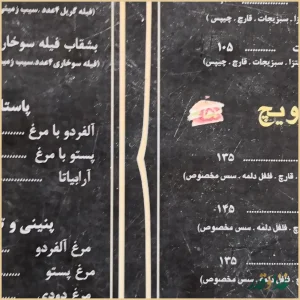 تزا . سبزیجات . قارچ . چیپس )
ت ............ ۱۰۵
تزا . سبزیجات . قارچ . چیپس )
ویچ
............ ۱۳۵
. قارچ . فلفل دلمه . سس مخصوص )
............ ۱۴۵
ج . قارچ . فلفل دلمه . سس مخصوص )
............ ۱۳۵
. فلفل دلمه . سس مخصوص )
(فیله گریل ۴عدد.سیب زمینی
بشقاب فیله سوخاری
(فیله سوخاری ۴عدد.سیب زمین
پاستا
آلفردو با مرغ ............
پستو با مرغ ............
آرابیاتا ............
پنینی و ت
مرغ آلفردو ............
مرغ پستو ............
مرغ دودی ............